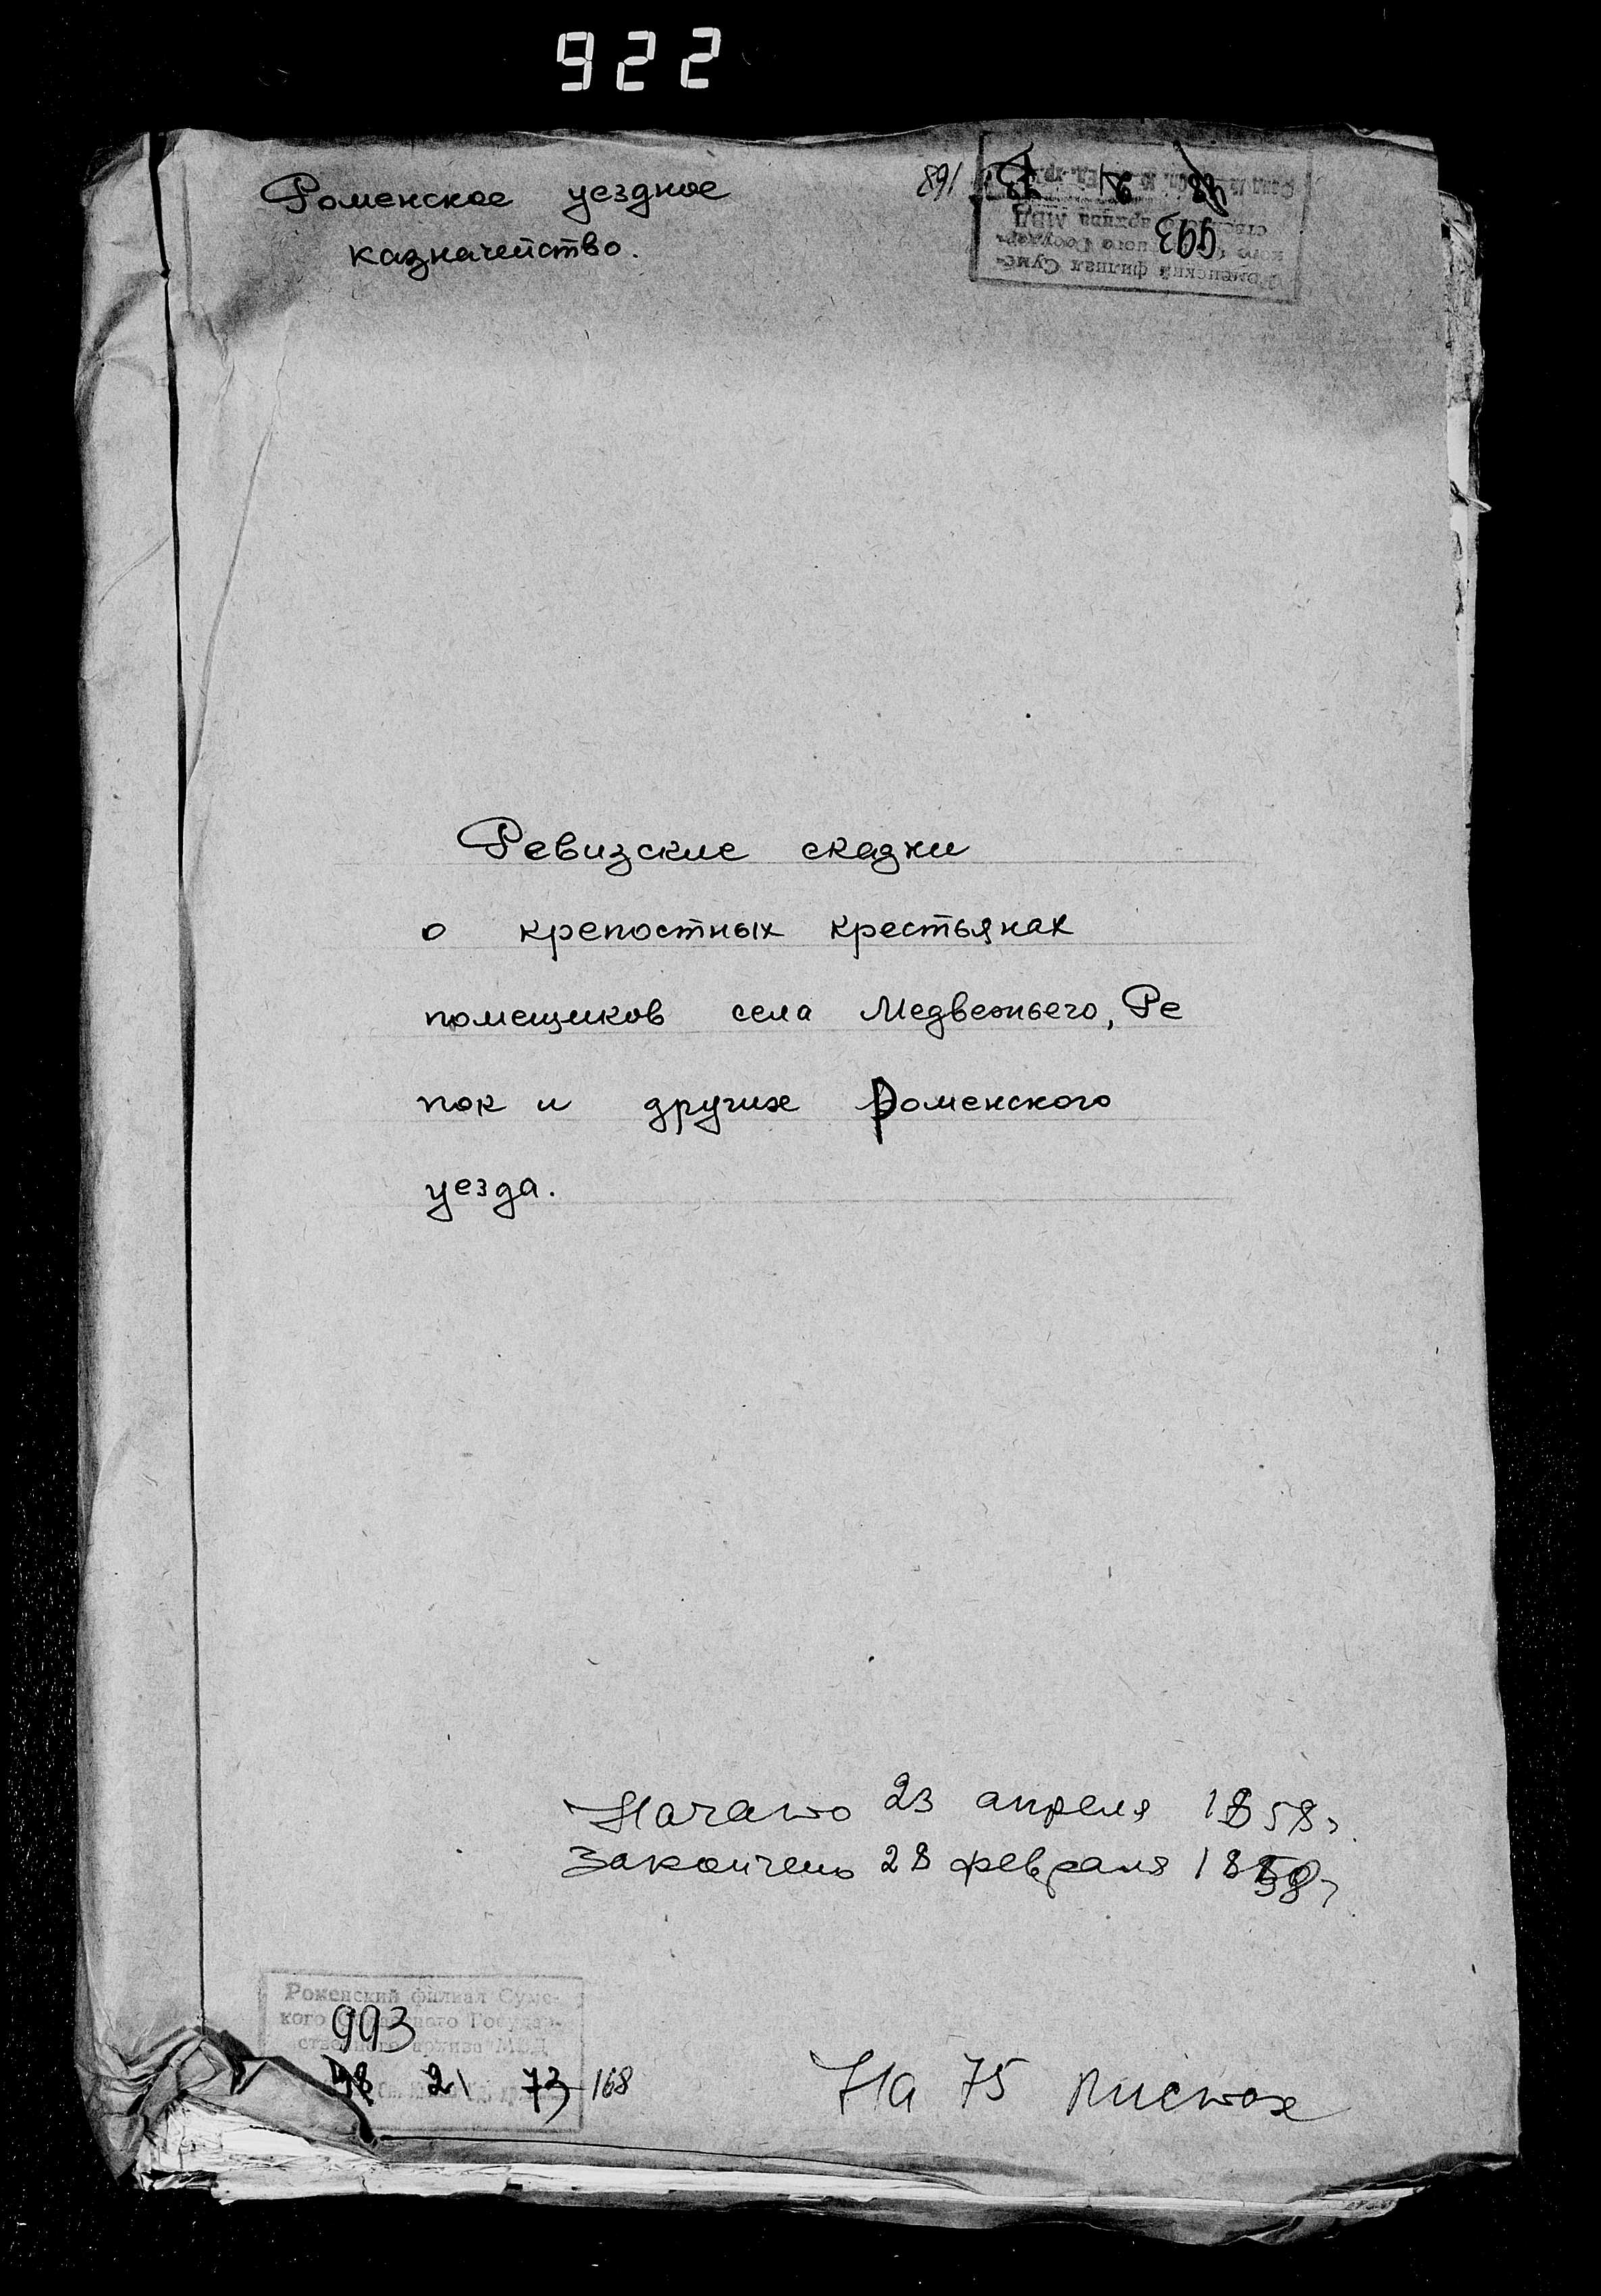 922
Роменское уездное
казначейство.
168
993
Ревизские сказки
о крепостных крестьянах
помещиков села Медвежьего, Ре
пок и других Роменского
уезда.
Начато 23 апреля 1858г.
Закончено 28 февраля
Роменский филиал Сумс-
кого Областного Государ-
ственного архива МВД
993
21 73 168
На 75 листах